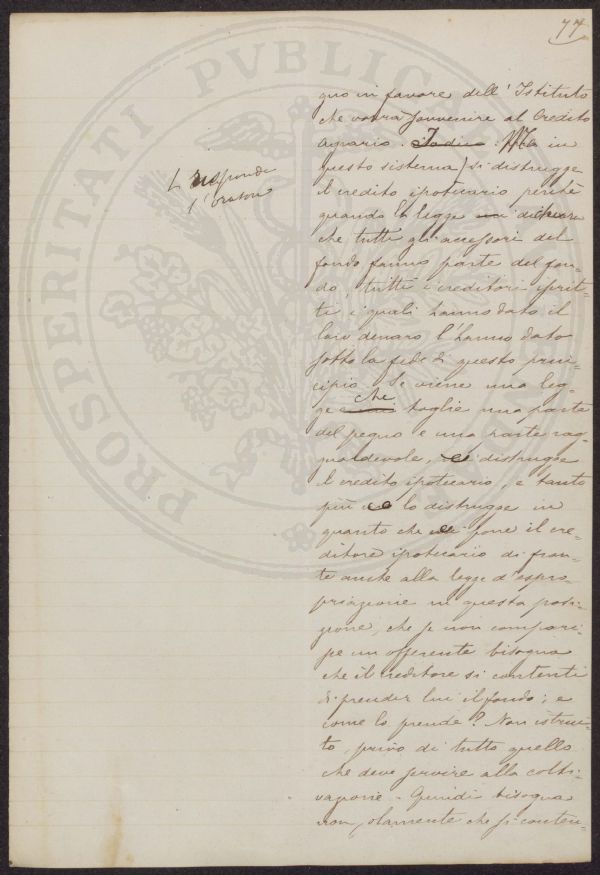 77
gno in favore dell'Istituto
che vorrà sovvenire al Credito
agrario. Ma in
questo sistema si distrugge
il credito ipotecario perchè
quando la legge dichiara
che tutti gli accessori del
fondo fanno parte del fon-
do, tutti i creditori iscrit-
ti i quali hanno dato il
loro denaro l'hanno dato
sotto la fede di questo prin-
cipio. Se viene una leg-
ge che toglie una parte
del pegno e una parte rag-
guardevole, si distrugge
il credito ipotecario, e tanto
più lo distrugge in
quanto che pone il cre-
ditore ipotecario di fron-
te anche alla legge d'espro-
priazione in questa posi-
zione, che se non compari-
sce un offerente bisogna
che il creditore si contenti
di prender lui il fondo; e
come lo prende? Non istrui-
to, privo di tutto quello
che deve servire alla colti-
vazione. Quindi bisogna
non solamente che si conten-
risponde
l'Oratore
PROSPERITATI PVBLICAE